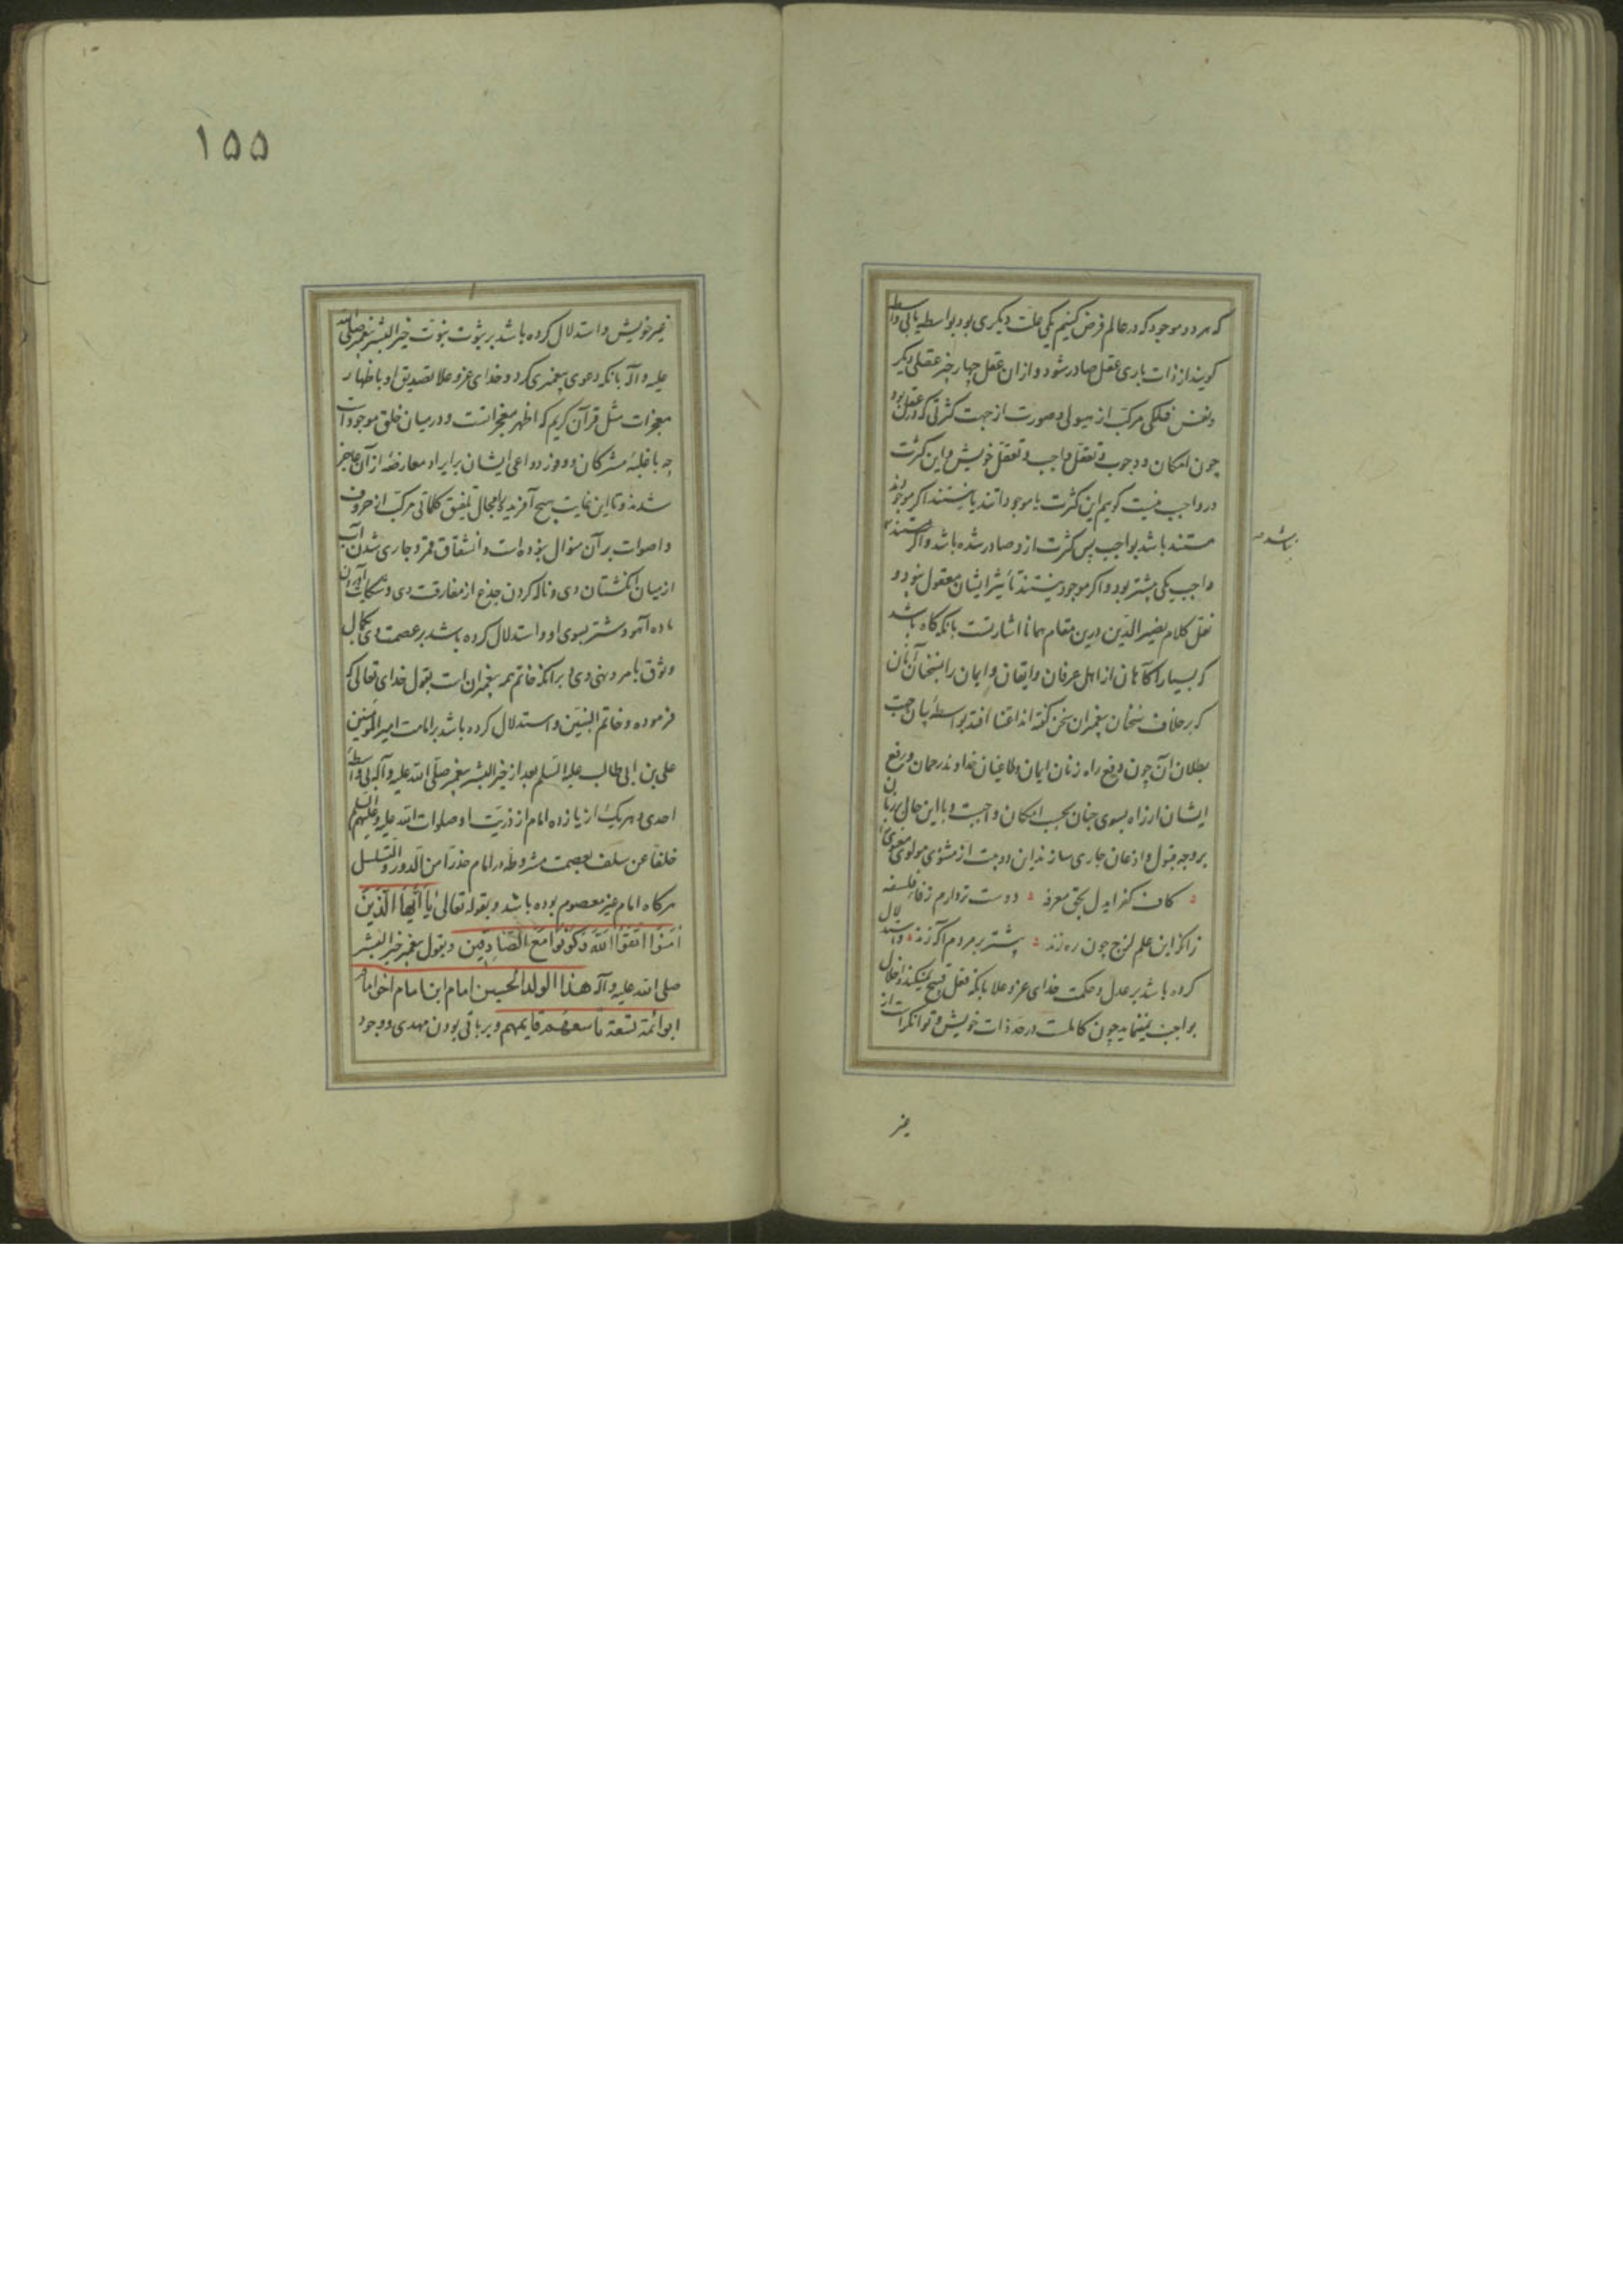 که هر دو موجود که در عالم فرض کنیم یکی علت دیگری بود بواسطه یا بی واسطه
گویند از ذات باری عقل صادر شود و از آن عقل چهار چیز عقلی دیگر
و نفس فلکی مرکب از هیولی و صورت از جهت کثرتی که در آن عقل بود
چون امکان و وجوب و تعقل واجب و تعقل خویش و این کثرت
در واجب نیست گویم این کثرت یا موجودانند یا نیستند اگر موجودند
مستند باشد بواجب پس کثرت از و صادر شده باشد و اگر مستند
نباشد
واجب یکی بیشتر بود و اگر موجود نیستند تأثیر ایشان معقول نبود و
نقل کلام نصیر الدین درین مقام همانا اشارتست بانکه گاه باشد
که بسیار آگاهان از اهل عرفان و ایقان و ایمان را بسخنان آنان
که بر خلاف سخنان پیغمبران سخن گفته اند اعتنا افتد بواسطهٔ بیان جهت
بطلان آن چون دفع راه زنان ایمان و طاغیان خداوند رحمان و رفع
ایشان از راه بسوی جنان بحسب امکان واجبست و با این حال بر زبان
بر وجه قبول و اذعان جاری سازند این دو بیت از مثنوی مولوی معنوی
کاف کفر ای دل بحق معرفه دوست تر دارم ز فای فلسفه
زانکه این علم لزج چون ره زند بیشتر بر مردم آگه زند و استدلال
کرده باشد بر عدل و حکمت خدای عز و علا بانکه فعل قبیح نمیکند و اخلال
بواجب نمینماید چون کاملست در حد ذات خویش و توانگر است از
غیر
۱۵۵
غیر خویش و استدلال کرده باشد بر ثبوت نبوت خیر البشر پیغمبر صلی الله
علیه و آله بانکه دعوی پیغمبری کرد و خدای عز و علا تصدیق او باظهار
معجزات مثل قرآن کریم که اظهر معجزاتست و در میان خلق موجود است
چه با غلبهٔ مشرکان و وفور دواعی ایشان بر ایراد معارضه از آن عاجز
شدند و تا این غایت هیچ آفریده را مجال تلفیق کلماتی مرکب از حروف
و اصوات بر آن منوال نبوده است و انشقاق قمر و جاری شدن آب
از میان انگشتان وی و ناله کردن جذع از مفارقت وی و شکایت آوردن
ماده آهو و شتر بسوی او و استدلال کرده باشد بر عصمت وی بکمال
وثوق بامر و نهی وی و بر انکه خاتم همه پیغمبران است بقول خدای تعالی که
فرموده و خاتم النبیین و استدلال کرده باشد بر امامت امیر المؤمنین
علی بن ابی طالب علیه السلم بعد از خیر البشر پیغمبر صلی الله علیه و آله بی واسطهٔ
احدی و هر یک از یازده امام از ذریت او صلوات الله علیه و علیهم السلم
خلفا عن سلف بعصمت مشروطه در امام حذرا من الدور و التسلسل
هر گاه امام غیر معصوم بوده باشد و بقوله تعالی یا أیها الذین
آمنوا اتقوا الله و کونوا مع الصادقین و بقول پیغمبر خیر البشر
صلی الله علیه و آله هذا الولد الحسین امام ابن امام اخو امام
ابو ائمة تسعة تاسعهم قایمهم و بر باقی بودن مهدی و وجود